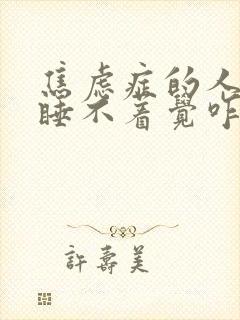 焦虑症的人
睡不着覺咋
許壽美